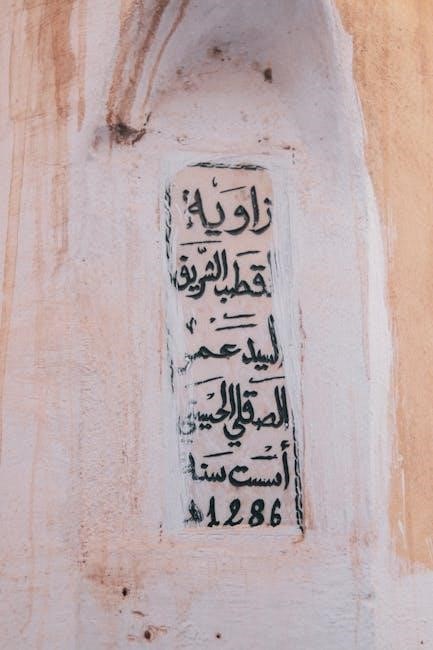 زاوية
القطب الشريف
السيد عمر
الصقلي الحسيني
أسست سنة
1286 ه